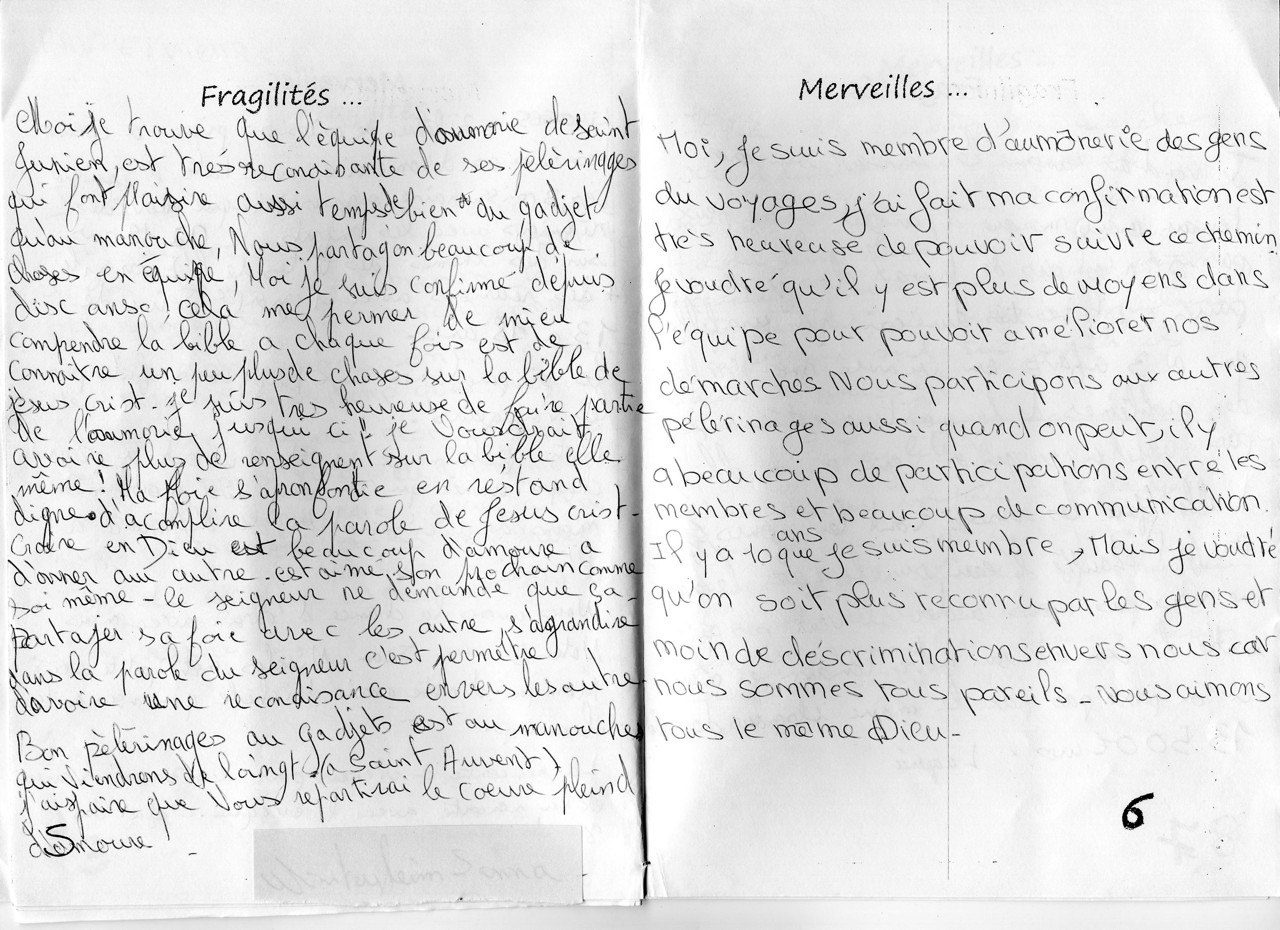 Fragilités ...
Moi je trouve que l'équipe d'aumonerie de saint
Junien, est trés reconaisante de ses pèlèrinages
qui font plaisire aussi temps de bien du gadjet
qu'au manouche, Nous partagon beaucoup de
choses en équipe, Moi je suis confirmé dépuis
disc anse! celà me permer de mieu
comprendre la bible a chaque fois est de
connaitre un peu plus de choses sur la bible de
jésus crist. je suis tres heureuse de faire partie
de l'aumonerie, jusqui ci! je Voudrait
avoire plus de renseignent sur la bible elle
même! Ma foie s'apronfontie en réstand
digne d'acomplire la parole de Jesus crist -
Croire en Dieu est beaucoup d'amoure a
d'onner aux autre. est aimé son prochain comme
soi même - le seigneur ne demande que ça -
Partager sa foie avec les autre, s'agrandire
dans la parole du seigneur c'est permêtre
davoire une reconaisance envers les autre.
Bon pèlèrinages au gadjets est au manouches
qui viendrons de loingt (a Saint Auvent)
j'aispaire que vous repartirai le coeure pleind
d'amoure -
5
Merveilles ...
Moi, Je suis membre d'aumônerie des gens
du voyages, j'ai fait ma confirmation est
très heureuse de pouvoir suivre ce chemin,
Je voudré qu'il y est plus de moyens dans
l'équipe pour pouvoir améliorer nos
démarches. Nous participons aux autres
pélérinages aussi quand on peut, il y
a beaucoup de participations entre les
membres et beaucoup de communication.
Il y a 10 ans que je suis membre, Mais je voudré
qu'on soit plus reconnu par les gens et
moin de déscriminations envers nous car
nous sommes tous pareils - Nous aimons
tous le même Dieu -
6